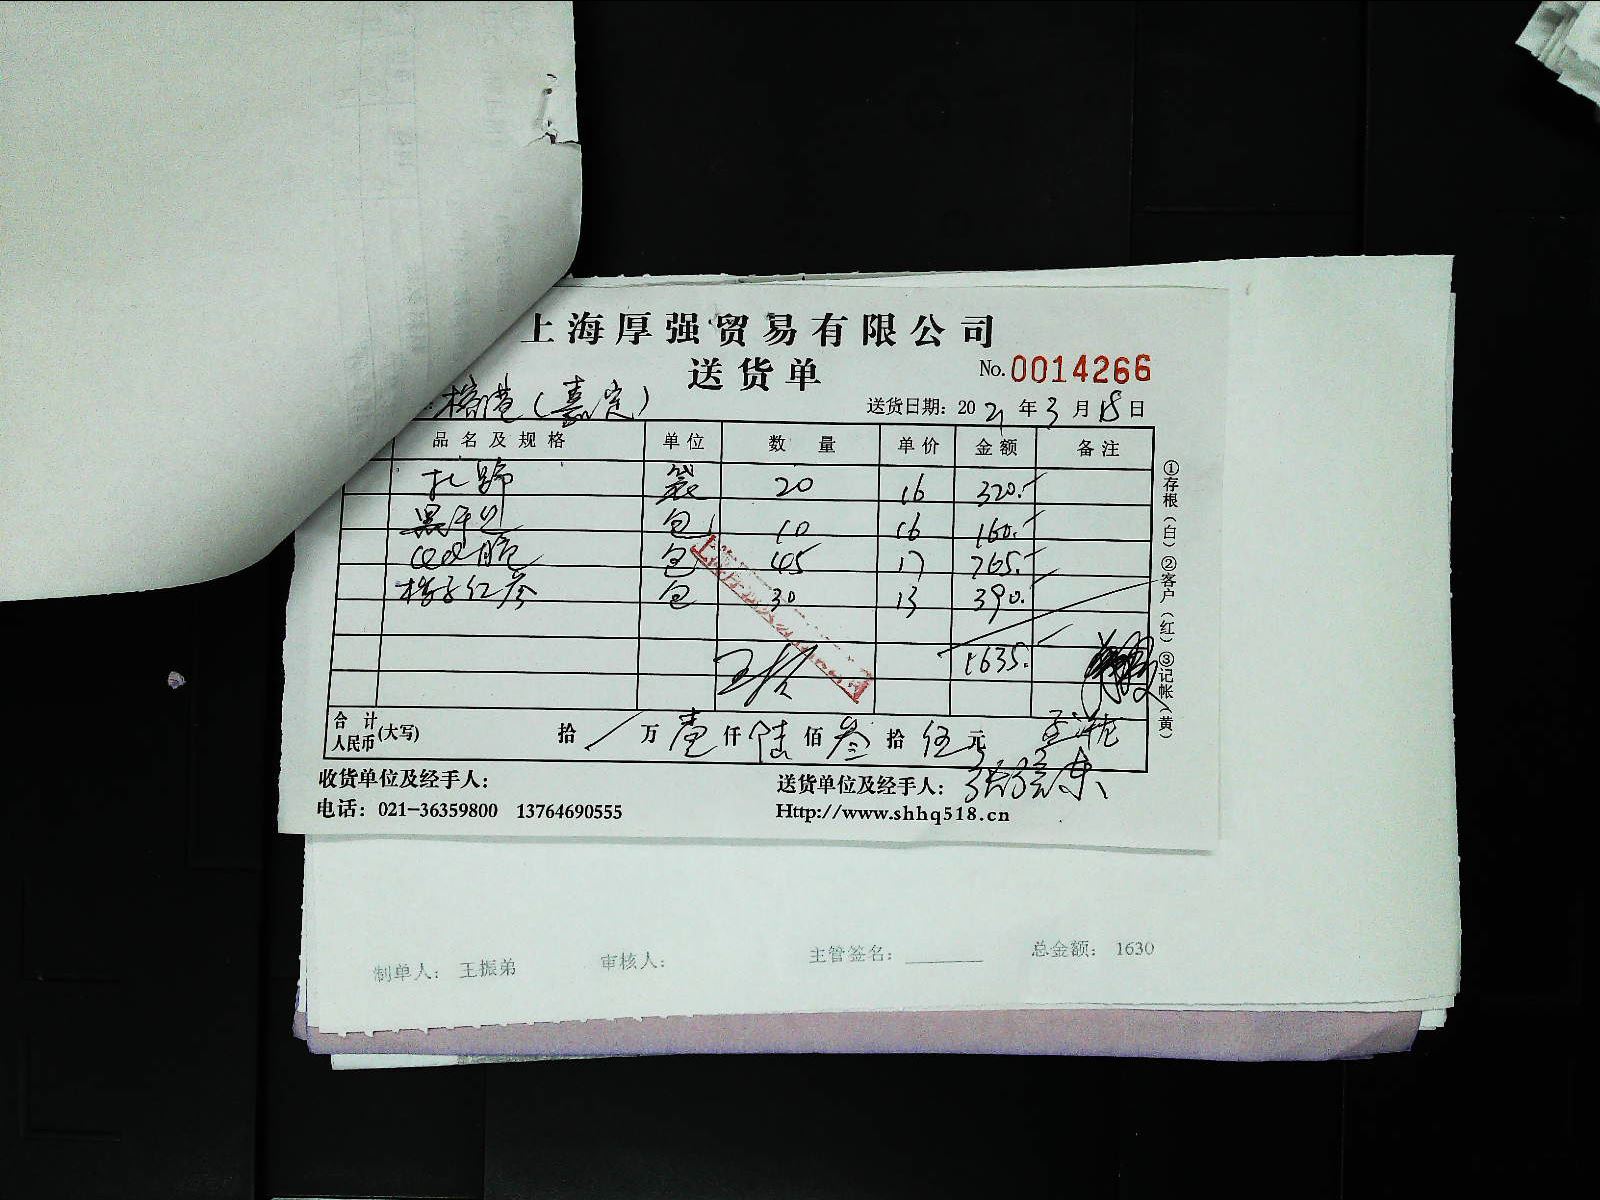 上海厚强贸易有限公司
送货单 No.0014266
（嘉定） 送货日期：2021年3月18日
品名及规格 单位 数量 单价 金额 备注
扎蹄 袋 20 16 320.
包 10 16 160.
包 45 17 765.
包 30 13 390.
1635.
合计人民币(大写) 拾 万壹仟陆佰叁拾伍元
收货单位及经手人： 送货单位及经手人：
电话：021-36359800 13764690555 Http://www.shhq518.cn
①存根（白）②客户（红）③记帐（黄）
制单人：王振弟 审核人： 主管签名： 总金额：1630